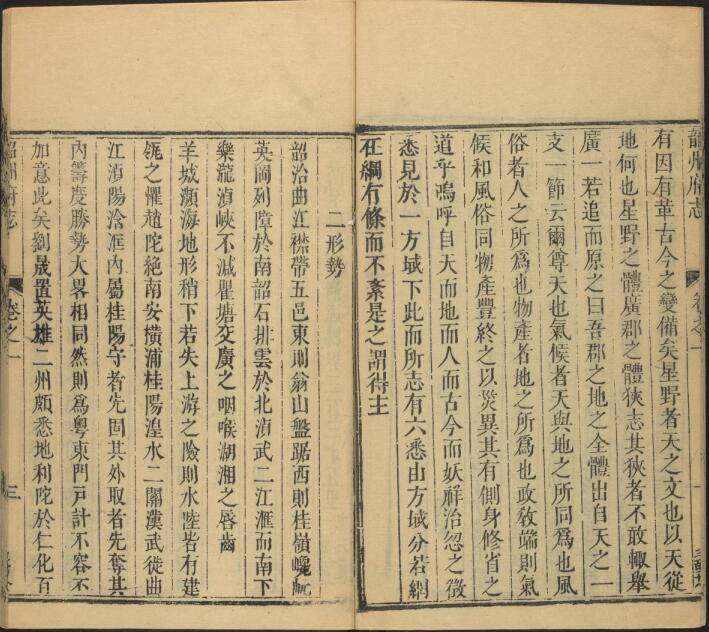 韶州府志 卷之一
有因有革古今之變備矣星野者天之文也以天從
地何也星野之體廣郡之體狹志其狹者不敢輙舉
廣一若追而原之曰吾郡之地之全體出自天之一
支一節云爾尊天也氣候者天與地之所同爲也風
俗者人之所爲也物產者地之所爲也政敎端則氣
候和風俗同物產豐終之以災異其有側身修省之
道乎嗚呼自天而地而人而古今而妖祥治忽之徵
悉見於一方域下此而所志有六悉由方域分若網
在綱有條而不紊是之謂得主
二形勢
韶治曲江襟帶五邑東則翁山盤踞西則桂嶺巉岏
英岡列障於南韶石排雲於北湞武二江滙而南下
樂瀧湞峽不減瞿塘交廣之咽喉湖湘之唇齒
羊城瀕海地形稍下若失上游之險則水陸皆有建
瓴之懼趙陀絕南安橫浦桂陽湟水二關漢武徙曲
江湞陽浛洭內屬桂陽守者先固其外取者先奪其
內籌度勝勢大畧相同然則爲粵東門戸計不容不
加意此矣劉晟置英雄二州頗悉地利陀於仁化百
韶州府志 卷之一 三